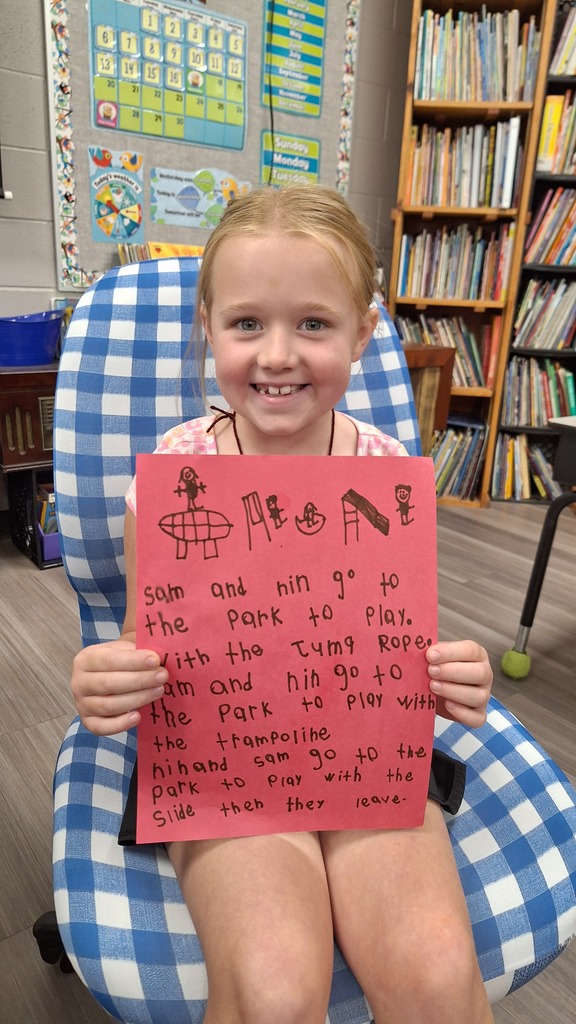 March
April
May
June
July
August
September
October
November
December
1 2 3 4 5
6 7 8 9 10 11 12
13 14 15 16
Sunday
Monday
Tuesday
Today's weather is
Yesterday was
Today is
Tomorrow will be
sam and nin go to
the Park to Play.
with the Jump Rope.
sam and nin go to
the Park to Play with
the trampoline
nin and sam go to the
Park to Play with the
Slide then they leave.